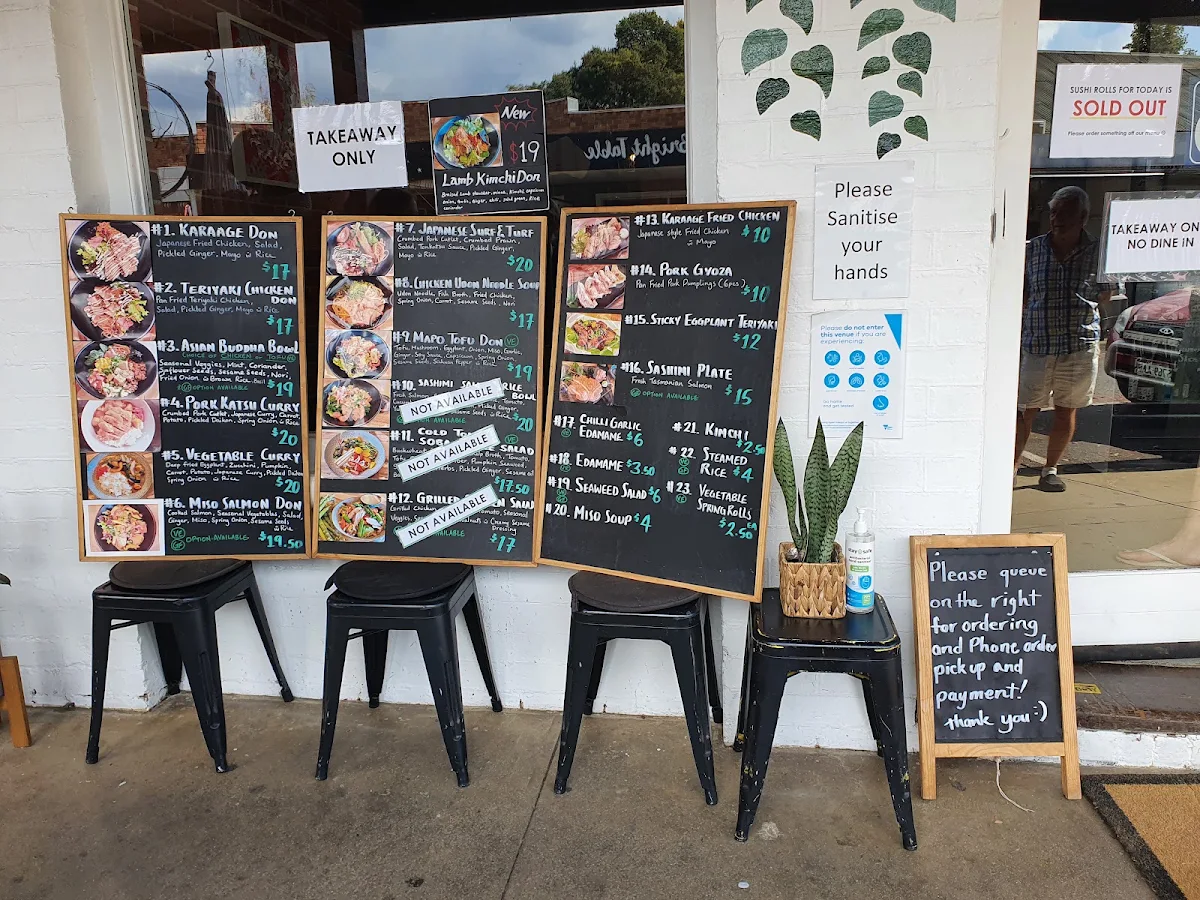 TAKEAWAY
ONLY
New
$19
Lamb Kimchi Don
#1. KARAAGE DON
Japanese Fried Chicken, Salad,
Pickled Ginger, Mayo & Rice
$17
#2. TERIYAKI CHICKEN DON
Pan Fried Teriyaki Chicken,
Salad, Pickled Ginger, Mayo & Rice
$17
#3. ASIAN BUDDHA BOWL
CHOICE OF CHICKEN OR TOFU
Seasonal Veggies, Mint, Coriander,
Sunflower Seeds, Sesame Seeds, Nori,
Fried Onion & Brown Rice
OPTION AVAILABLE
$19
#4. PORK KATSU CURRY
Crumbed Pork Cutlet, Japanese Curry, Carrot,
Potato, Pickled Daikon, Spring Onion & Rice
$20
#5. VEGETABLE CURRY
Deep fried Eggplant, Zucchini, Pumpkin,
Carrot, Potato, Japanese Curry, Pickled Daikon
Spring Onion & Rice
$20
#6. MISO SALMON DON
Cooked Salmon, Seasonal Vegetables, Salad,
Ginger, Miso, Spring Onion, Sesame Seeds
& Rice
OPTION AVAILABLE
$19.50
#7. JAPANESE SURF & TURF
Crumbed Pork Cutlet, Crumbed Prawn,
Salad, Tonkatsu Sauce, Pickled Ginger,
Mayo & Rice
$20
#8. CHICKEN UDON NOODLE SOUP
Udon Noodle, Fish Broth, Fried Chicken,
Spring Onion, Carrot, Sesame Seeds, Nori
$17
#9. MAPO TOFU DON VE
Tofu, Mushroom, Eggplant, Onion, Miso, Garlic,
Ginger, Soy Sauce, Capsicum, Spring Onion,
Sesame Seeds, Sichuan Pepper & Rice
$19
#10. SASHIMI
BOWL
NOT AVAILABLE
$20
#11. COLD
SOBA
NOT AVAILABLE
$17.50
#12. GRILLED SALAD
Grilled Chicken
NOT AVAILABLE
& Creamy Sesame
Dressing
$17
#13. KARAAGE FRIED CHICKEN
Japanese style Fried Chicken
& Mayo
$10
#14. PORK GYOZA
Pan Fried Pork Dumplings (6pcs)
$10
#15. STICKY EGGPLANT TERIYAKI
VE
$12
#16. SASHIMI PLATE
Fresh Tasmanian Salmon
OPTION AVAILABLE
$15
#17. CHILLI GARLIC
EDAMAME $6
#18. EDAMAME $3.50
#19. SEAWEED SALAD $6
#20. MISO SOUP $4
#21. KIMCHI
$2.50
#22. STEAMED
RICE $4
#23. VEGETABLE
SPRING ROLLS
$2.50
Please
Sanitise
your
hands
Please do not enter
this venue if you are
experiencing:
Go home
and get tested
Bright Table
SUSHI ROLLS FOR TODAY IS
SOLD OUT
Please order something off our menu
TAKEAWAY ON
NO DINE IN
Please queue
on the right
for ordering
and Phone order
pick up and
payment!
thank you :)